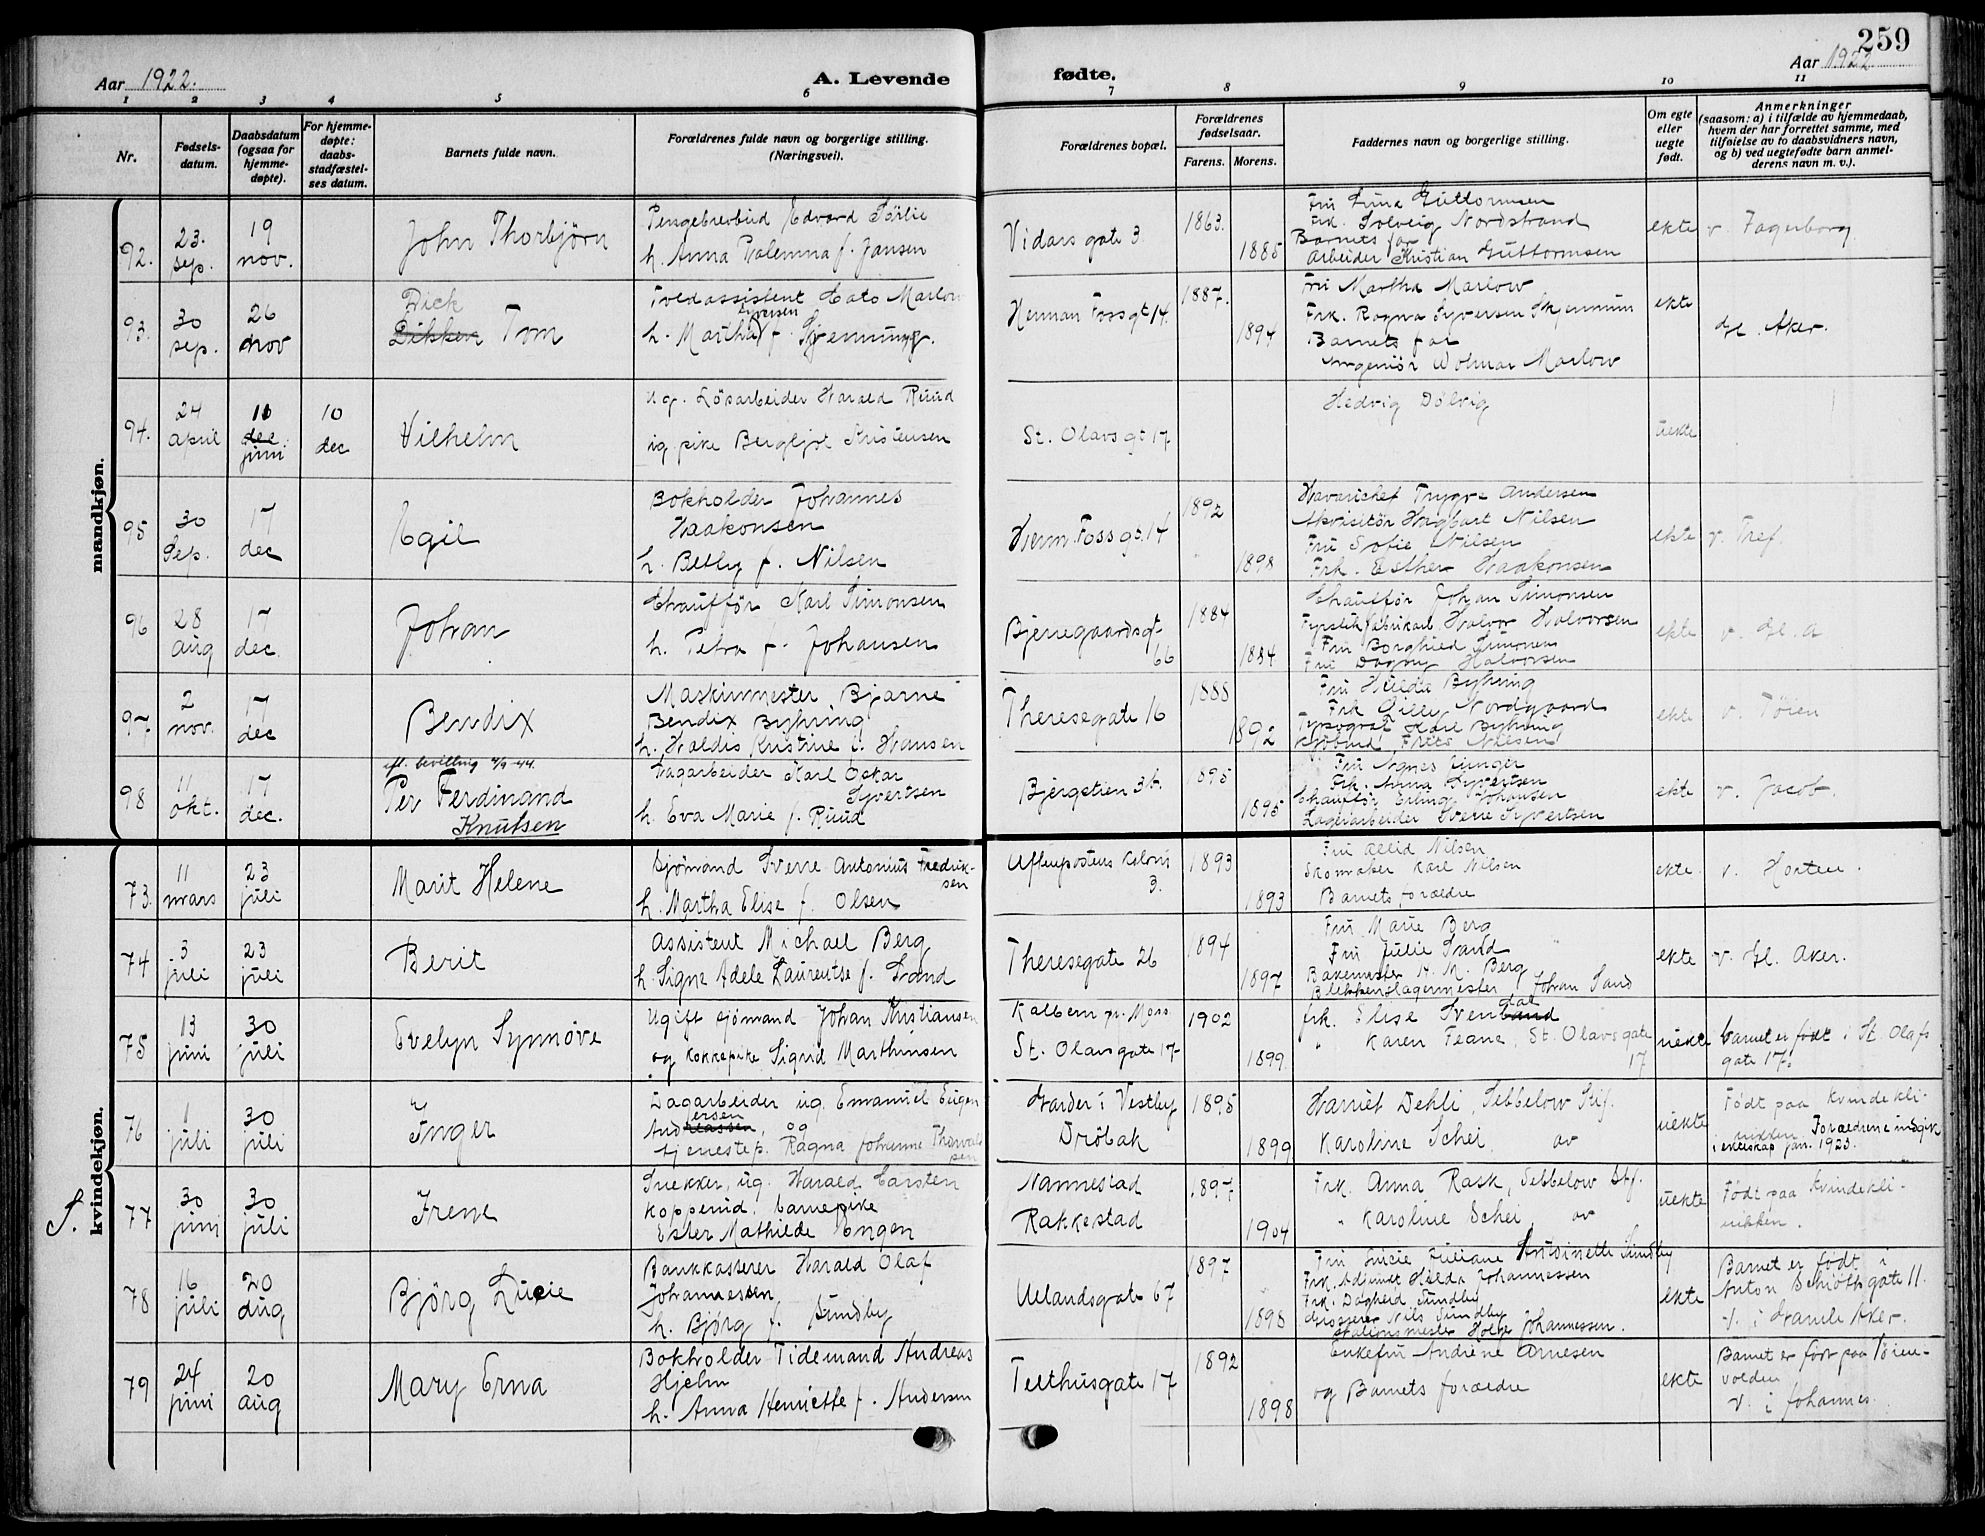 259
Aar 1922.
A. Levende
fødte.
Aar 1922
1 2 3 4 5 6 7 8 9 10 11
Nr.
Fødsels-
datum.
Daabsdatum
(ogsaa for
hjemme-
døpte).
For hjemme-
døpte:
daabs-
stadfæstel-
ses datum.
Barnets fulde navn.
Forældrenes fulde navn og borgerlige stilling.
(Næringsvei).
Forældrenes bopæl.
Forældrenes
fødselsaar.
Farens. Morens.
Faddernes navn og borgerlige stilling.
Om egte
eller
uegte
født.
Anmerkninger
(saasom: a) i tilfælde av hjemmedaab,
hvem der har forrettet samme, med
tilføielse av to daabsvidners navn,
og b) ved uegtefødte barn anmel-
derens navn m. v.).
mandkjøn.
92.
23.
sep.
19
nov.
John Thorbjørn
Pengebrevbud Edvard Sørlie
h. Anna Palemna f. Jansen
Vidars gate 3
1863.
1885
Fru Lina Guttormsen
Frk. Solveig Nordstrand
Barnets far
Arbeider Kristian Guttormsen
ekte
v. Fagerborg
93.
30
sep.
26
nov
Dick
Dikken Tom
Toldassistent Cato Marlow
Syversen
h. Martha f. Skjennum
Herman Foss gt 14.
1887.
1894
Fru Martha Marlow
Frk. Ragna Syversen Skjennum
Barnets far
Ingeniør Wolmar Marlow
ekte
gl. Aker.
94.
24
april
11
dec.
juni
10
dec
Vilhelm
ug. Løsarbeider Harald Ruud
ug. pike Bergljot Kristensen
St. Olavs gt 17
Hedvig Dølvig
uekte
95
30
Sep.
17
dec
Egil
Bokholder Johannes
Haakonsen
h. Betly f. Nilsen
Herm. Foss gt. 14
1892
1898
Havarichef Trygve Andersen
Akvisitør Hagbart Nilsen
Fru Sofie Nilsen
Frk. Esther Haakonsen
ekte
v. Tref.
96
28
aug
17
dec.
Johan
Chauffør Karl Simonsen
h. Petra f. Johansen
Bjerregaardsgt.
66
1884
1884
Chauffør Johan Simonsen
Fyrstikfabrikarb. Halvor Halvorsen
Fru Borghild Simonsen
Fru Dagny Halvorsen
ekte
v. gl. A
97.
2
nov.
17
dec
Bendix
Maskinmester Bjarne
Bendix Byhring
h. Haldis Kristine f. Hansen
Theresegate 16
1888
1892
Fru Hulda Byhring
Frk Gilly Nordgaard
Typograf Karl Byhring
Frits Nilsen
ekte
v. Tøien
98
11
okt.
17
dec.
efl. bevilling 4/9-44.
Per Ferdinand
Knutsen
Dagarbeider Karl Oskar
Syvertsen
h. Eva Marie f. Ruud
Bjergstien 3b.
1895
1895
Fru Agnes Unger
Frk. Anna Syvertsen
Chauffør Erling Johansen
Lagerarbeider Sverre Syvertsen
ekte
v. Jacob.
kvindekjøn.
S.
73.
11
mars
23
juli
Marit Helene
Sjømand Sverre Antonius Fredrik-
sen
h. Martha Elise f. Olsen
Aftenpostens Koloni
3.
1893
1893
Fru Nilsen
Skomaker Karl Nilsen
Barnets forældre
ekte.
v. Horten.
74
3
juli
23
juli
Berit
Assistent Michael Berg
h. Signe Adele Laurentse f. Sand
Theresegate 26
1894
1897
Fru Marie Berg
Fru Julie Sand
Bakemester H. M. Berg
Blekkenslagermester Johan Sand
ekte
v. gl. Aker.
75
13
juni
30
juli
Evelyn Synnøve
Ugift sjømand Johan Kristiansen
og kokkepike Sigrid Marthinsen
Kalbern pr. Moss.
St. Olavsgate 17
1902
1899
frk. Elise Svendal
" Karen Feane, St. Olavsgate
17
uekte
barnet er født i St. Olafs
gate 17.
76
1
juli
30
juli
Inger
Dagarbeider ug. Emanuel Eugen
Andersen, og
tjenestep. Ragna Johanne Thorvald-
sen
Garder i Vestby
Drøbak
1895
1899
Harriet Dehli, Sebbelow Stif.
Karoline Schei av
uekte
Født paa kvindekli-
nikken. Forældrene indgik
i ekteskap jan. 1923.
77
30
juni
30
juli
Irene
Snekker, ug. Harald Carsten
Kopperud, barnepike
Ester Mathilde Engen
Nannestad
Rakkestad
1897
1904
Frk. Anna Rask, Sebbelow Stf.
" Karoline Schei av
uekte
Født paa kvindekli-
nikken.
78
16
juli
20
aug
Bjørg Lucie
Bankkasserer Harald Olaf
Johannessen
h. Bjørg f. Sundby
Uelandsgate 67
1897
1898
Fru Lucie Juliane Antoinette Sundby
Frk. Adjunkt Hilda Johannessen
Frk. Dagheid Sundby
Grosserer Nils Sundby
Stationsmester Holger Johannessen.
ekte
Barnet er født i
Anton Schiøthsgate 11.
v. i Gamle Aker.
79
24
juni
20
aug
Mary Erna
Bokholder Tidemand Andreas
Hjelm
h. Anna Henriette f. Andersen
Teethusgate 17
1892
1898
Enkefru Andrine Arnesen
og Barnets forældre
ekte
Barnet er født paa Tøien-
volden
v. i Johannes.